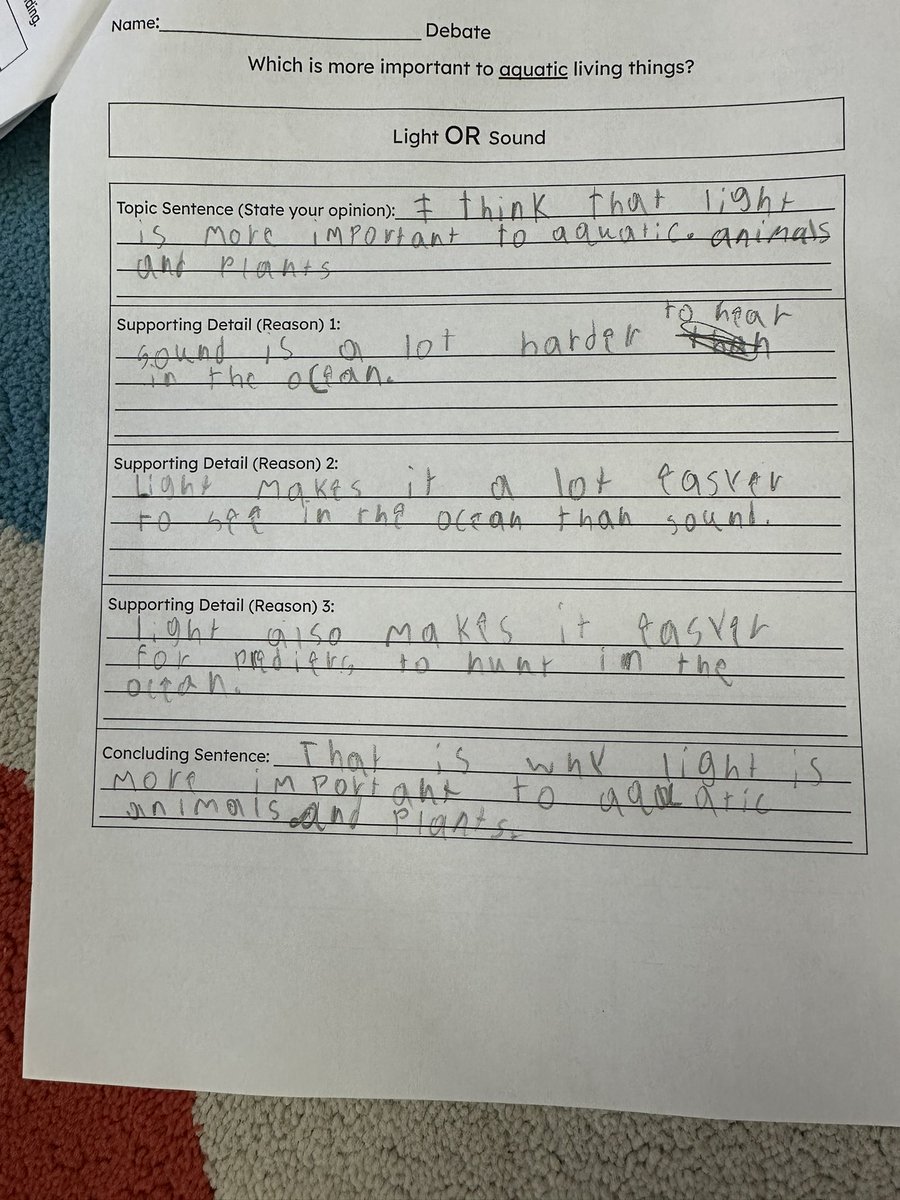 ding.
Name: Debate
Which is more important to aquatic living things?
Light OR Sound
Topic Sentence (State your opinion): I think that light
is more important to aquatic. animals
and plants
Supporting Detail (Reason) 1:
to hear
sound is a lot harder
in the ocean.
Supporting Detail (Reason) 2:
Light makes it a lot easyer
to see in the ocean than sound.
Supporting Detail (Reason) 3:
light also makes it easyer
for prediers to hunt in the
ocean.
Concluding Sentence: That is why light is
more important to aqauatic
animals and plants.